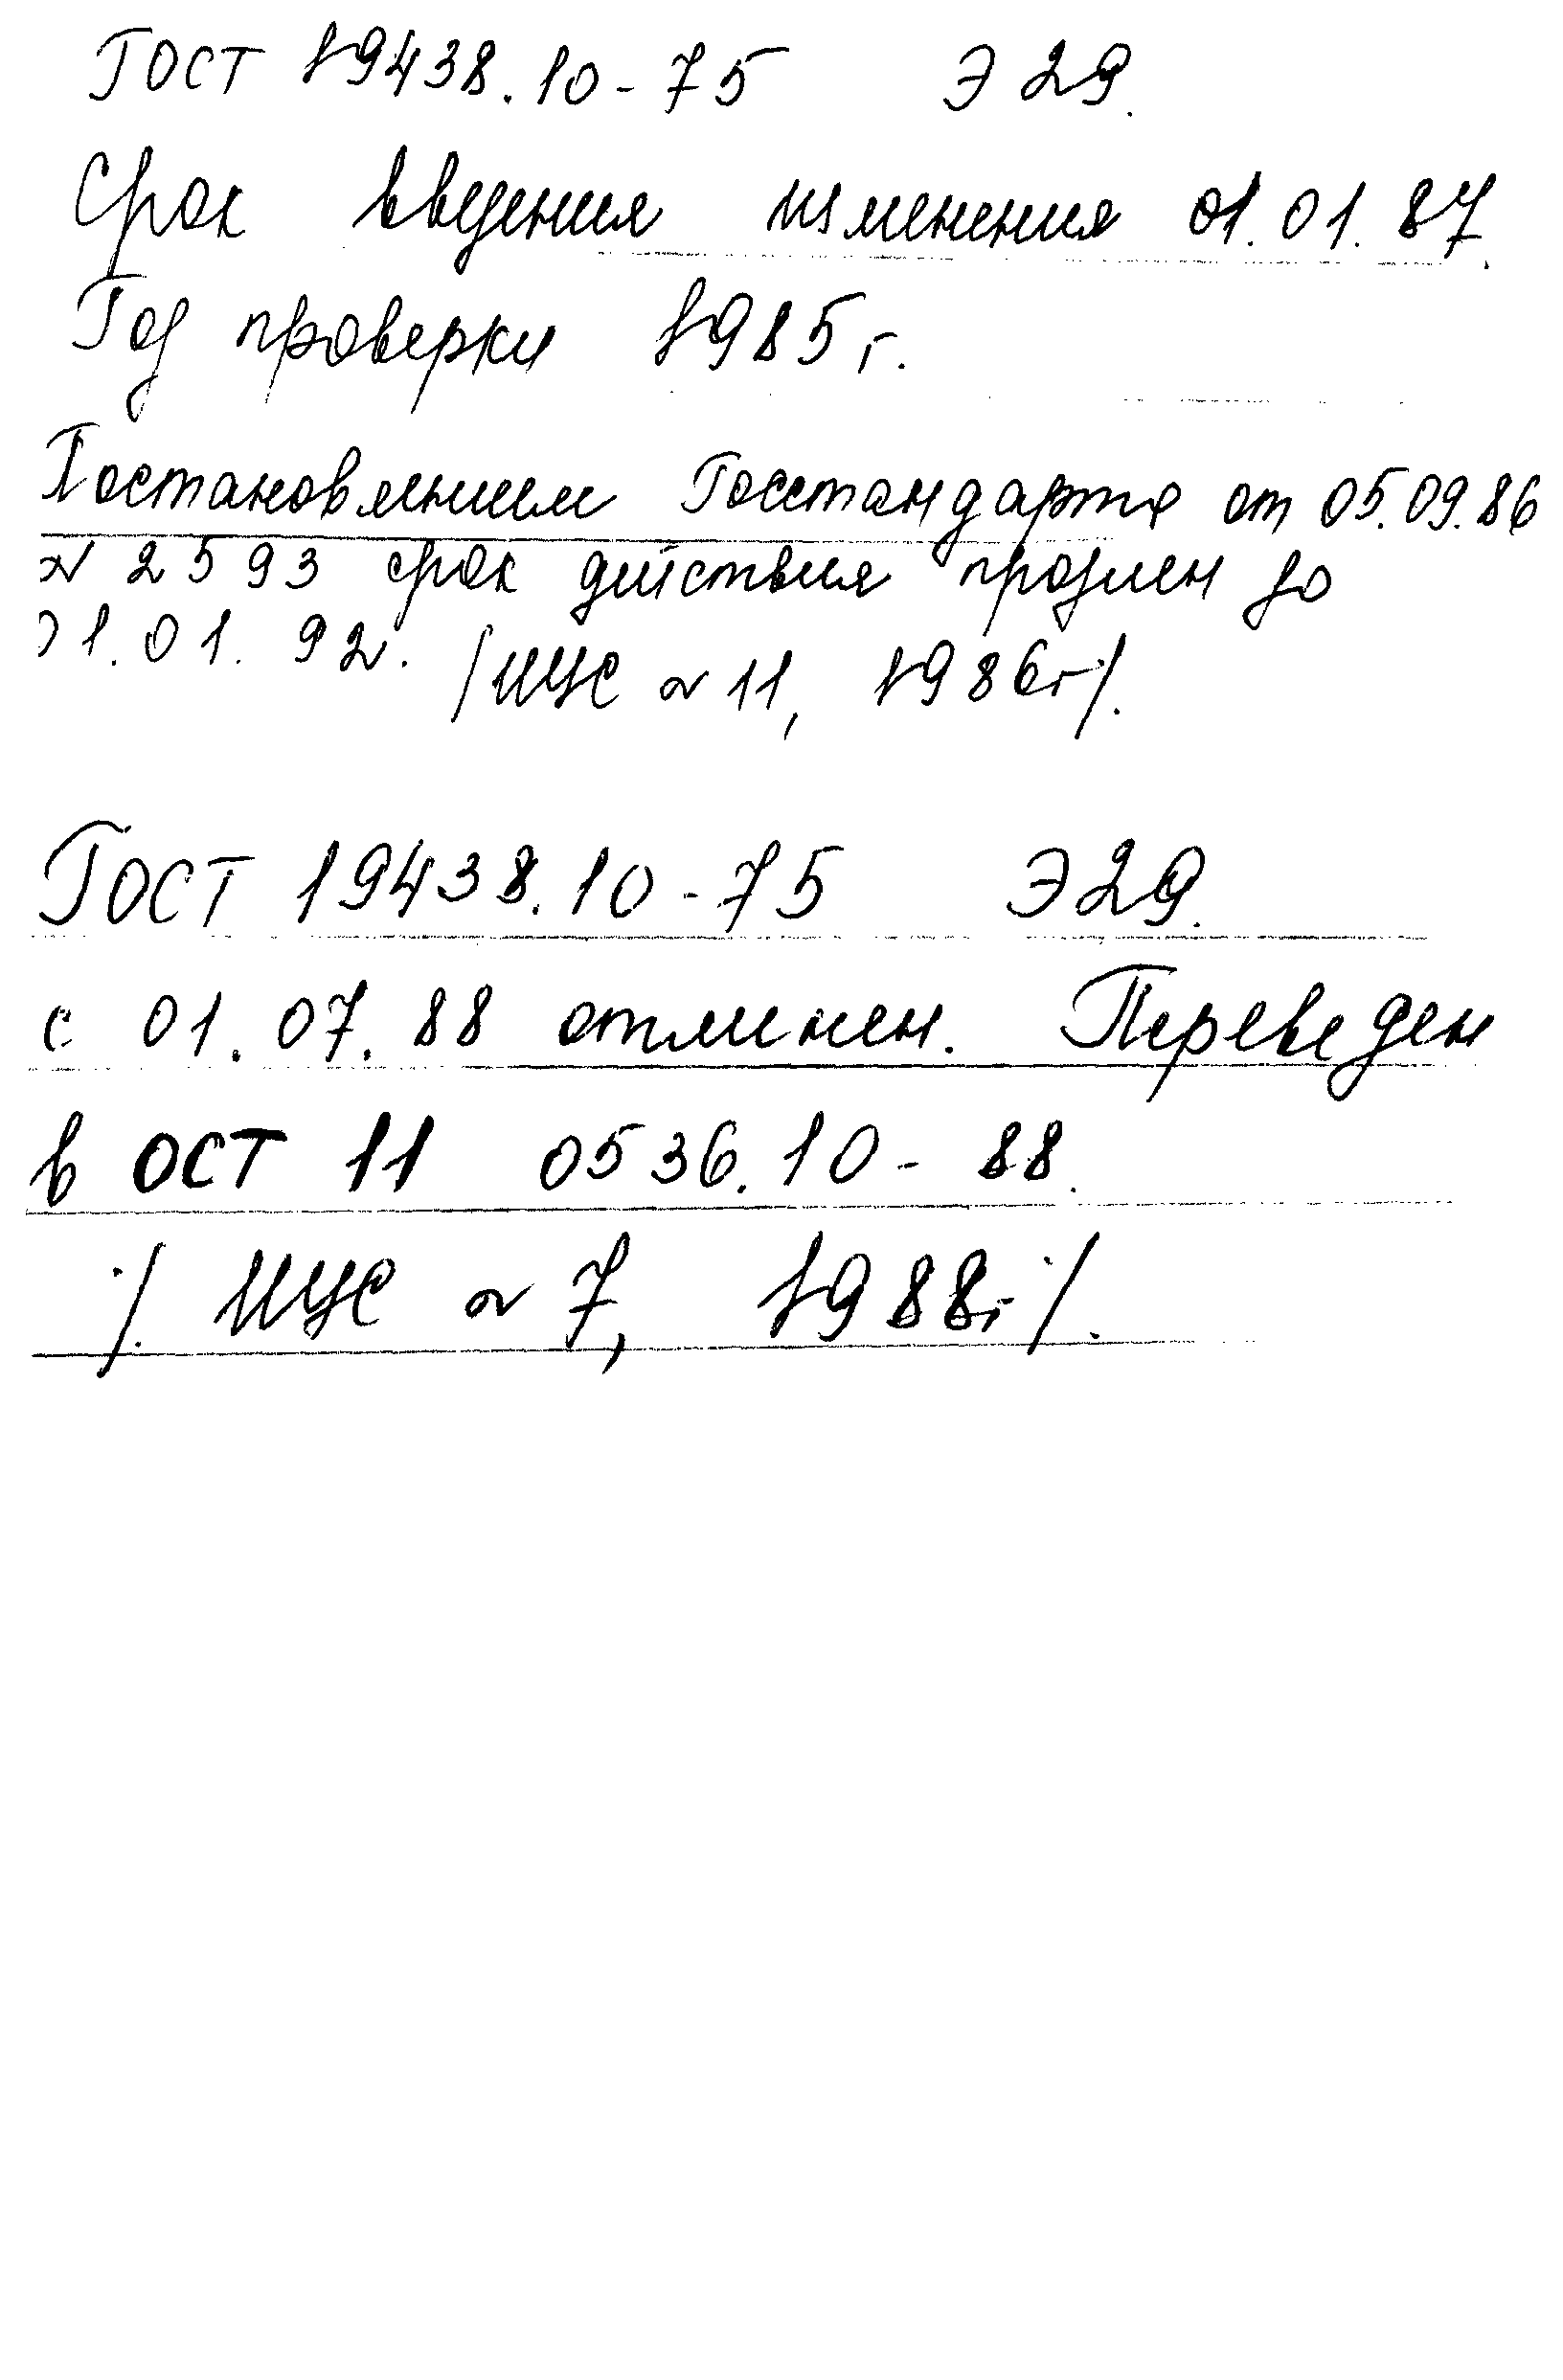 ГОСТ 19438.10-75 Э 29.
Срок введения изменения 01.01.87.
Год проверки 1985 г.
Постановлением Госстандарта от 05.09.86
№ 2593 срок действия продлен до
01.01.92. /ИУС № 11, 1986г/.
ГОСТ 19438.10-75 Э29.
с 01.07.88 отменен. Переведен
в ОСТ 11 0536.10-88.
/ ИУС № 7, 1988г /.